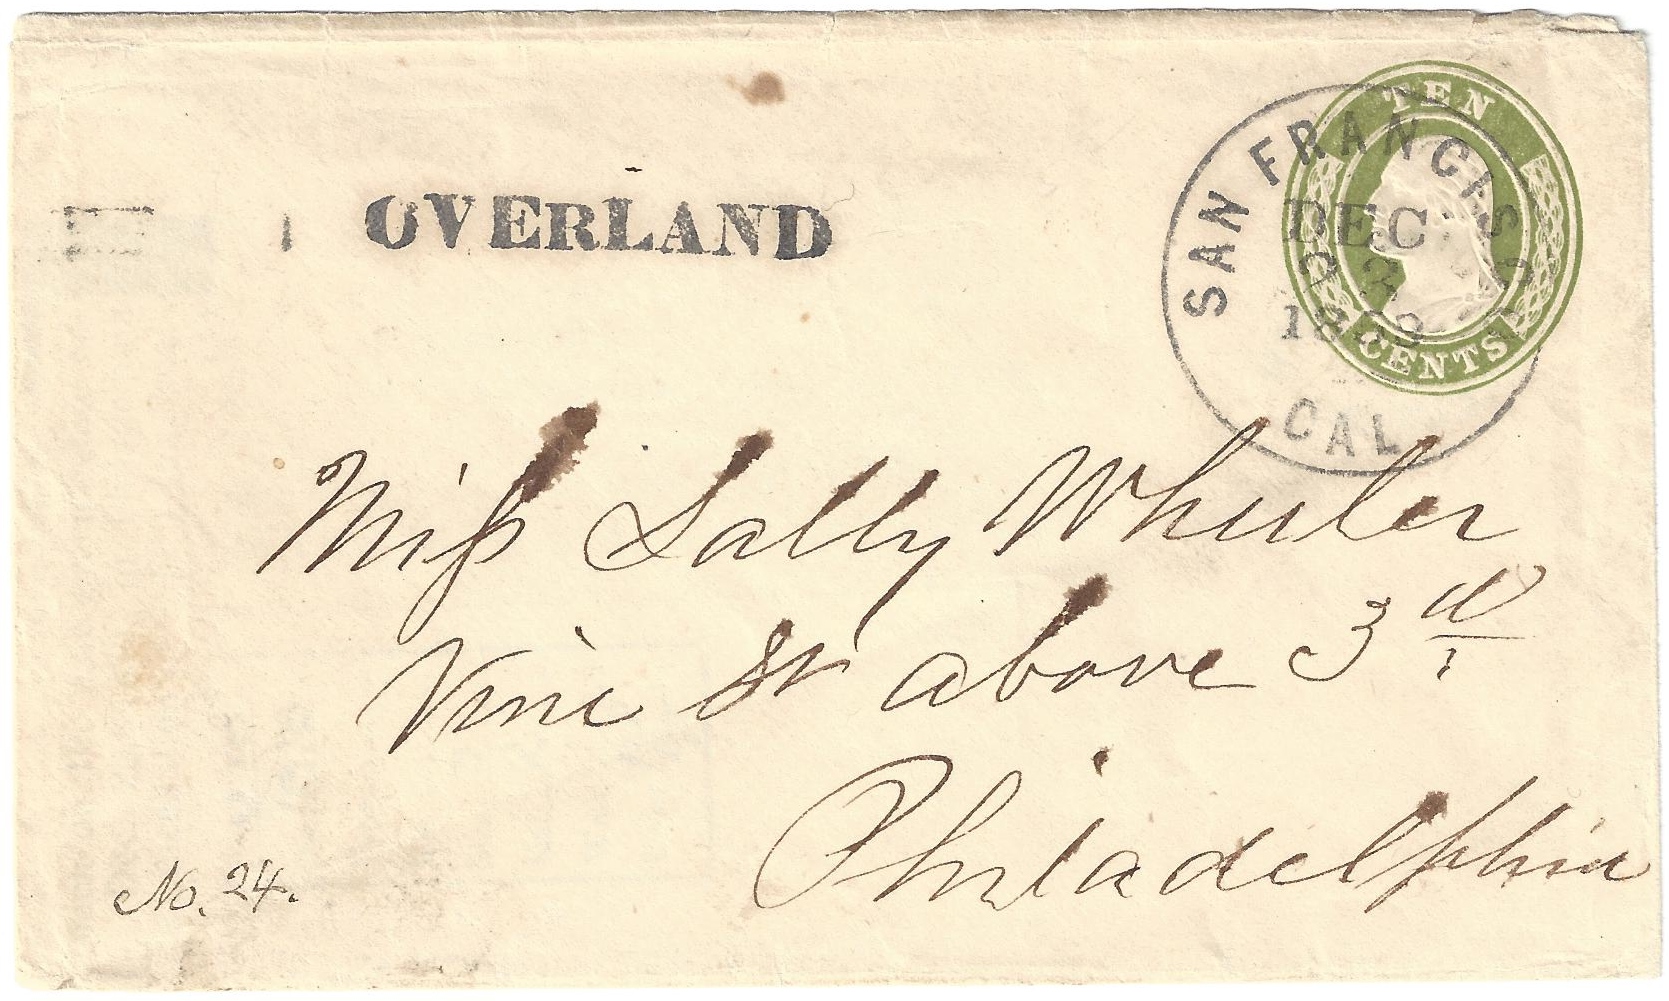 OVERLAND
TEN
CENTS
SAN FRANCISCO
DEC
2
CAL.
Miss Sally Wheeler
Vine St above 3d
Philadelphia
No. 24.